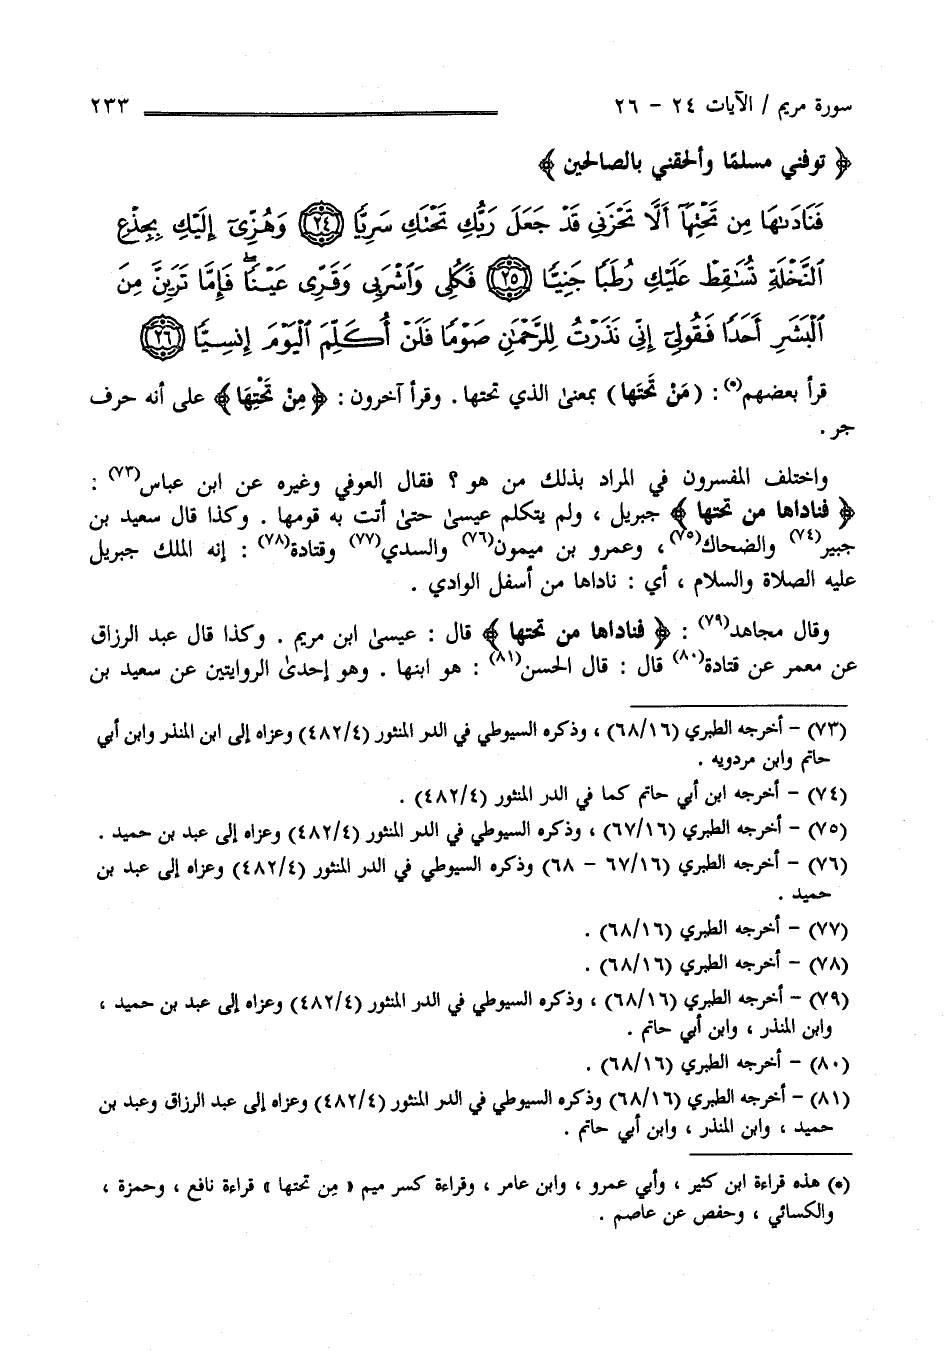 سورة مريم / الآيات ٢٤ - ٢٦ ٢٣٣
﴿ توفني مسلمًا وألحقني بالصالحين ﴾
فَنَادَىٰهَا مِن تَحْتِهَآ أَلَّا تَحْزَنِى قَدْ جَعَلَ رَبُّكِ تَحْتَكِ سَرِيًّا ٢٤ وَهُزِّىٓ إِلَيْكِ بِجِذْعِ
ٱلنَّخْلَةِ تُسَٰقِطْ عَلَيْكِ رُطَبًا جَنِيًّا ٢٥ فَكُلِى وَٱشْرَبِى وَقَرِّى عَيْنًا ۖ فَإِمَّا تَرَيِنَّ مِنَ
ٱلْبَشَرِ أَحَدًا فَقُولِىٓ إِنِّى نَذَرْتُ لِلرَّحْمَٰنِ صَوْمًا فَلَنْ أُكَلِّمَ ٱلْيَوْمَ إِنسِيًّا ٢٦
قرأ بعضهم(*) : ( مَنْ تَحْتَها ) بمعنىٰ الذي تحتها . وقرأ آخرون : ﴿ مِنْ تَحْتِهَا ﴾ على أنه حرف
جر .
واختلف المفسرون في المراد بذلك من هو ؟ فقال العوفي وغيره عن ابن عباس(٧٣) :
﴿ فناداها من تحتها ﴾ جبريل ، ولم يتكلم عيسىٰ حتىٰ أتت به قومها . وكذا قال سعيد بن
جبير(٧٤) والضحاك(٧٥) ، وعمرو بن ميمون(٧٦) والسدي(٧٧) وقتادة(٧٨) : إنه الملك جبريل
عليه الصلاة والسلام ، أي : ناداها من أسفل الوادي .
وقال مجاهد(٧٩) : ﴿ فناداها من تحتها ﴾ قال : عيسىٰ ابن مريم . وكذا قال عبد الرزاق
عن معمر عن قتادة(٨٠) قال : قال الحسن(٨١) : هو ابنها . وهو إحدىٰ الروايتين عن سعيد بن
(٧٣) - أخرجه الطبري (٦٨/١٦) ، وذكره السيوطي في الدر المنثور (٤٨٢/٤) وعزاه إلى ابن المنذر وابن أبي
حاتم وابن مردويه .
(٧٤) - أخرجه ابن أبي حاتم كما في الدر المنثور (٤٨٢/٤) .
(٧٥) - أخرجه الطبري (٦٧/١٦) ، وذكره السيوطي في الدر المنثور (٤٨٢/٤) وعزاه إلى عبد بن حميد .
(٧٦) - أخرجه الطبري (٦٧/١٦ - ٦٨) وذكره السيوطي في الدر المنثور (٤٨٢/٤) وعزاه إلى عبد بن
حميد .
(٧٧) - أخرجه الطبري (٦٨/١٦) .
(٧٨) - أخرجه الطبري (٦٨/١٦) .
(٧٩) - أخرجه الطبري (٦٨/١٦) ، وذكره السيوطي في الدر المنثور (٤٨٢/٤) وعزاه إلى عبد بن حميد ،
وابن المنذر ، وابن أبي حاتم .
(٨٠) - أخرجه الطبري (٦٨/١٦) .
(٨١) - أخرجه الطبري (٦٨/١٦) وذكره السيوطي في الدر المنثور (٤٨٢/٤) وعزاه إلى عبد الرزاق وعبد بن
حميد ، وابن المنذر ، وابن أبي حاتم .
(*) هذه قراءة ابن كثير ، وأبي عمرو ، وابن عامر ، وقراءة كسر ميم « مِن تحتها » قراءة نافع ، وحمزة ،
والكسائي ، وحفص عن عاصم .